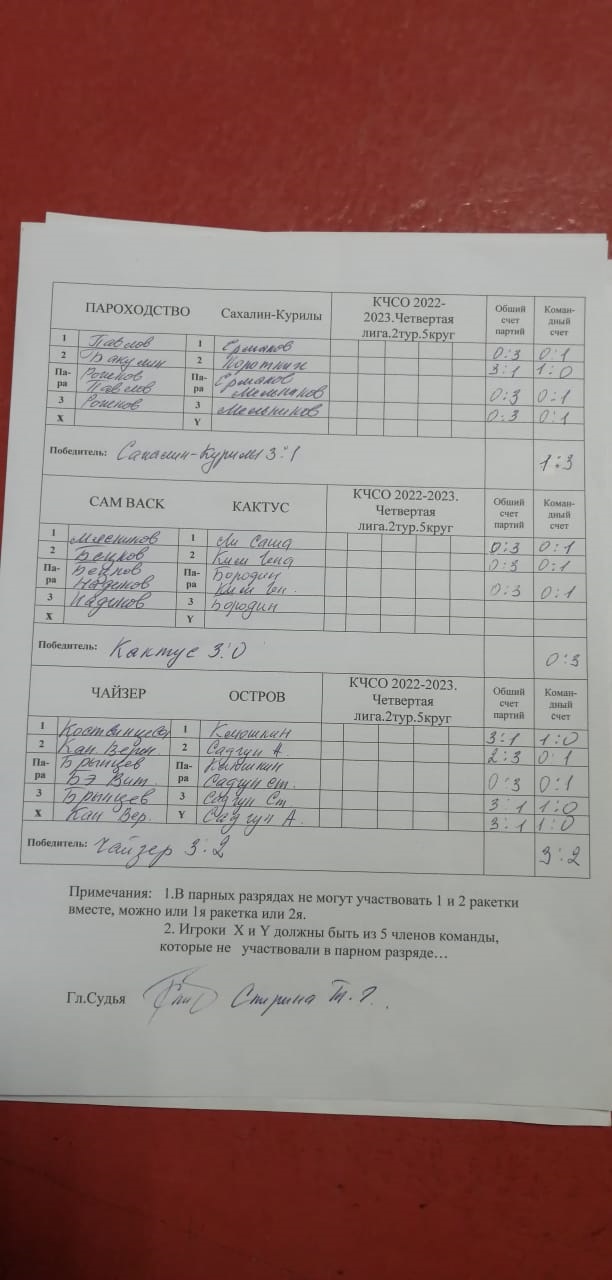 ПАРОХОДСТВО Сахалин-Курилы КЧСО 2022-2023.Четвертая лига.2тур.5круг Общий счет партий Коман-дный счет
1 Павлов 1 Ермаков 0:3 0:1
2 Бакулин 2 Коротких 3:1 1:0
Па-ра Роженов Павлов Па-ра Ермаков Мельников 0:3 0:1
3 Роженов 3 Мельников 0:3 0:1
X Y
Победитель: Сахалин-Курилы 3:1 1:3
САМ ВАСК КАКТУС КЧСО 2022-2023. Четвертая лига.2тур.5круг Общий счет партий Коман-дный счет
1 Мясников 1 Ли Саша 0:3 0:1
2 2 Ким Гена 0:3 0:1
Па-ра Па-ра Бородин Ким Ген. 0:3 0:1
3 3 Бородин
X Y
Победитель: Кактус 3:0 0:3
ЧАЙЗЕР ОСТРОВ КЧСО 2022-2023. Четвертая лига.2тур.5круг Общий счет партий Коман-дный счет
1 1 3:1 1:0
2 Кан 2 Садгун А. 2:3 0:1
Па-ра Брынцев БЭ Вит. Па-ра Садгун ст. 0:3 0:1
3 Брынцев 3 Садгун Ст 3:1 1:0
X Кан Вер. Y Садгун А. 3:1 1:0
Победитель: Чайзер 3:2 3:2
Примечания: 1.В парных разрядах не могут участвовать 1 и 2 ракетки
вместе, можно или 1я ракетка или 2я.
2. Игроки X и Y должны быть из 5 членов команды,
которые не участвовали в парном разряде…
Гл.Судья Т.